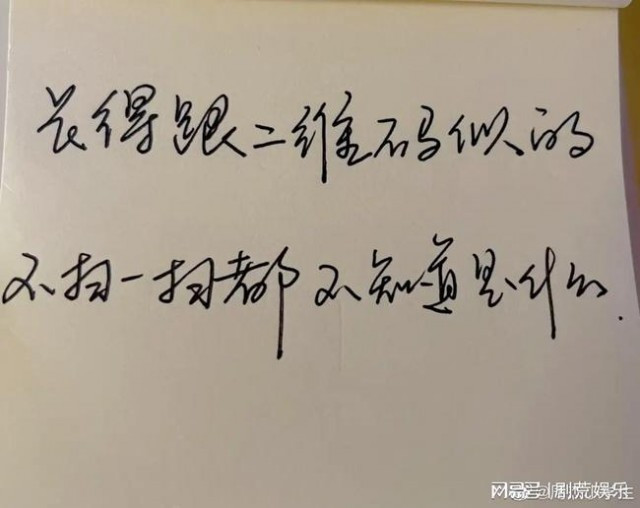 长得跟二维码似的
不扫一扫都不知道是什么.
网易号 | 剧荒娱乐